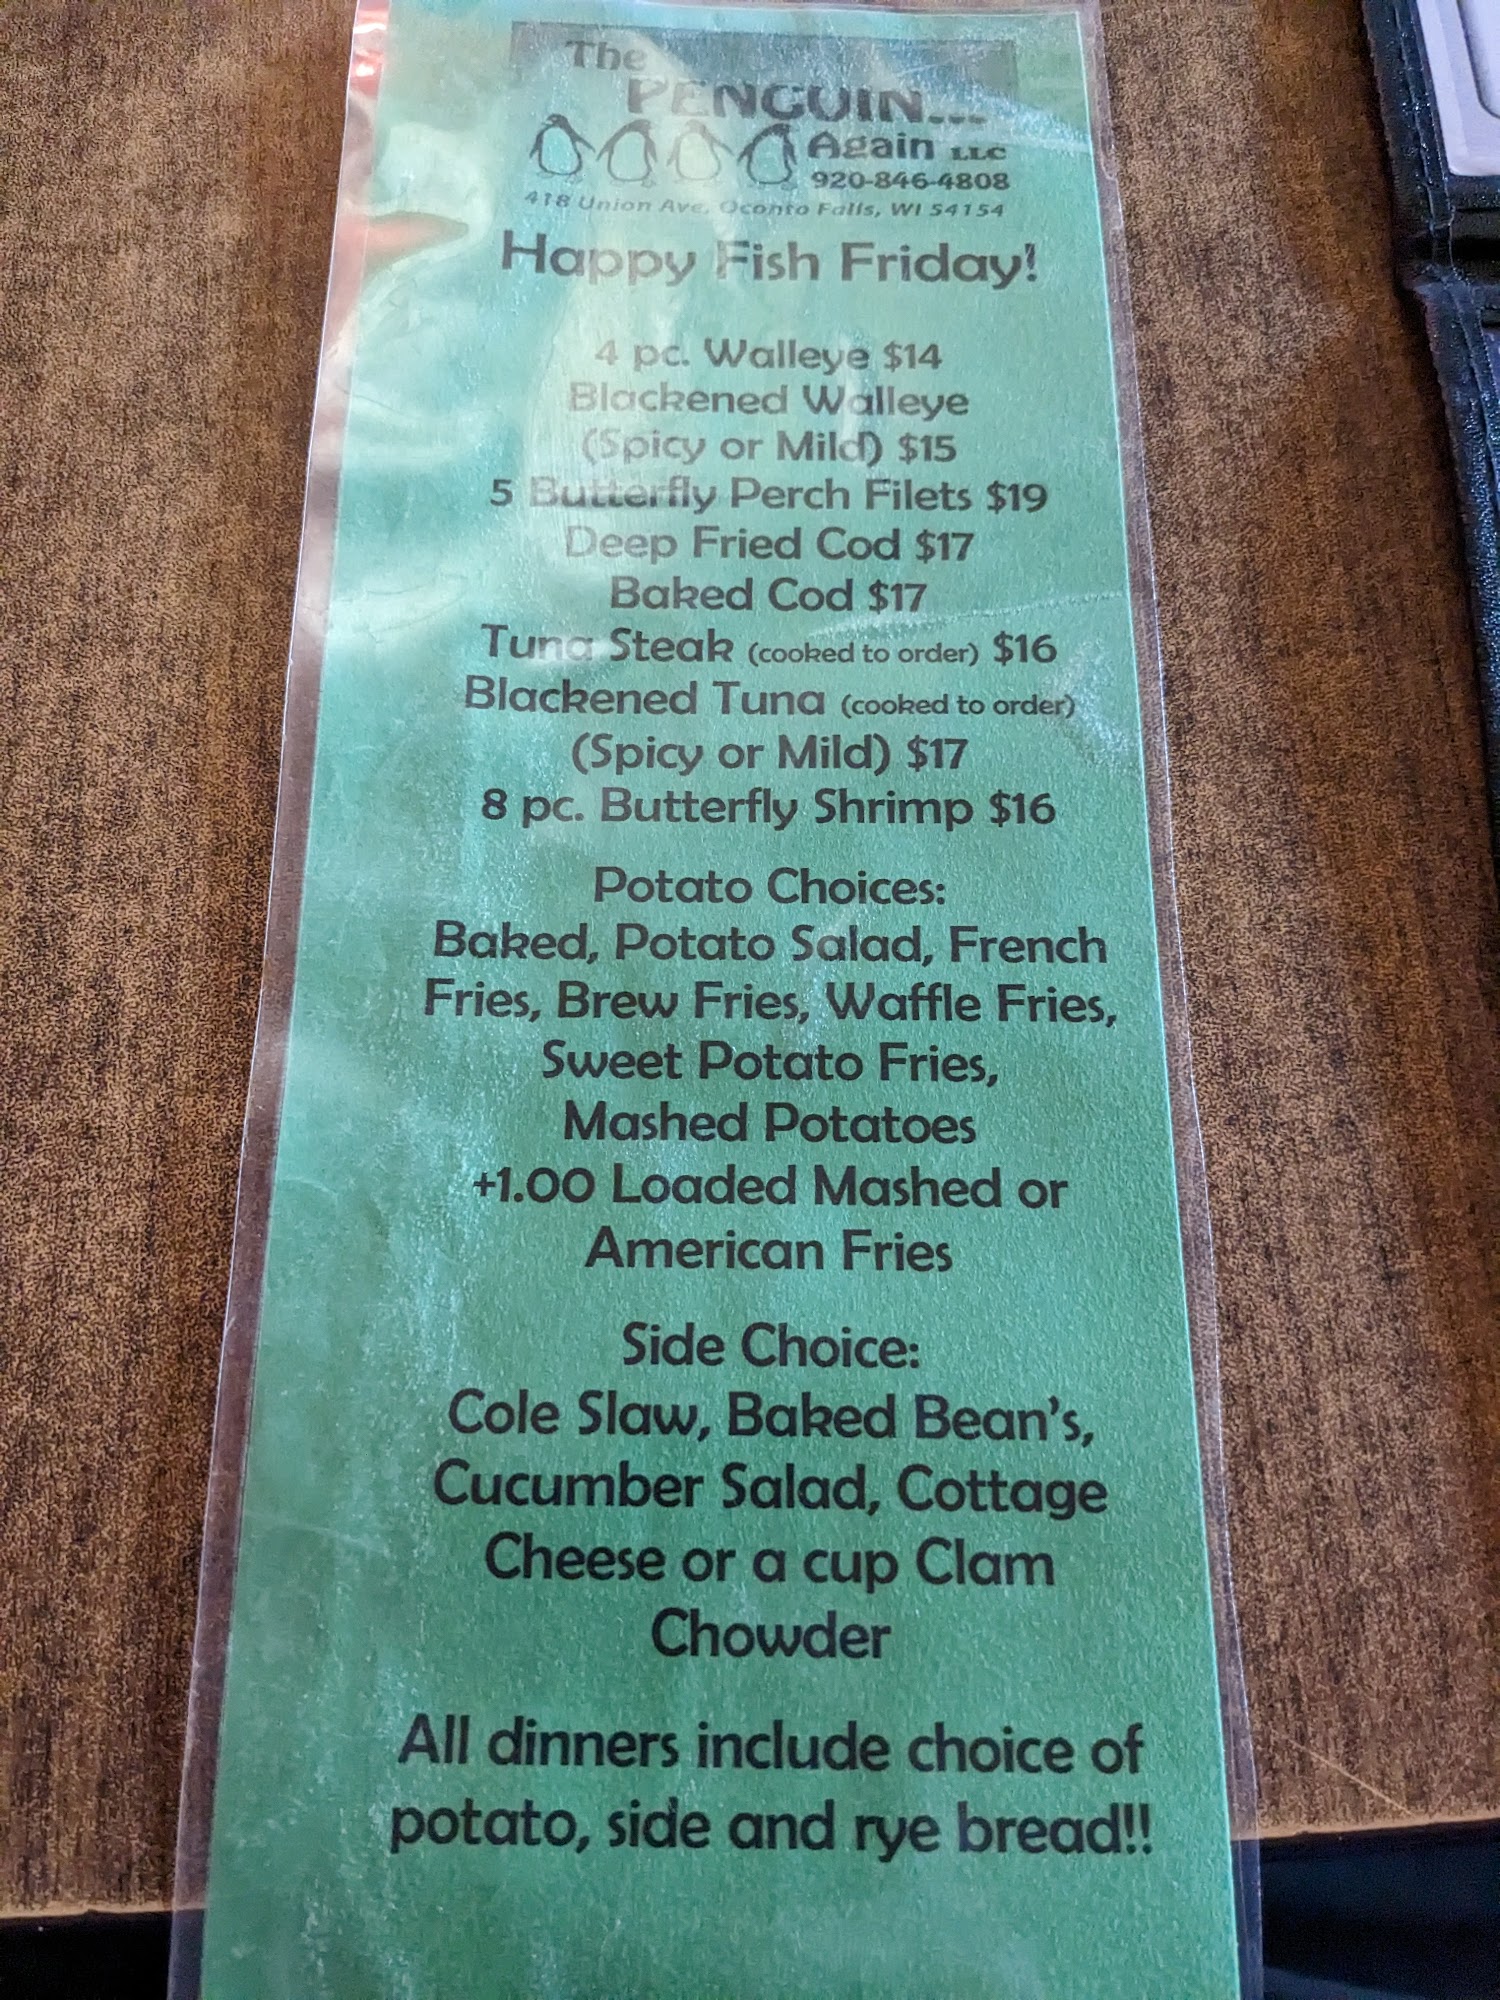 The
PENGUIN...
Again LLC
920-846-4808
418 Union Ave, Oconto Falls, WI 54154
Happy Fish Friday!
4 pc. Walleye $14
Blackened Walleye
(Spicy or Mild) $15
5 Butterfly Perch Filets $19
Deep Fried Cod $17
Baked Cod $17
Tuna Steak (cooked to order) $16
Blackened Tuna (cooked to order)
(Spicy or Mild) $17
8 pc. Butterfly Shrimp $16
Potato Choices:
Baked, Potato Salad, French
Fries, Brew Fries, Waffle Fries,
Sweet Potato Fries,
Mashed Potatoes
+1.00 Loaded Mashed or
American Fries
Side Choice:
Cole Slaw, Baked Bean's,
Cucumber Salad, Cottage
Cheese or a cup Clam
Chowder
All dinners include choice of
potato, side and rye bread!!